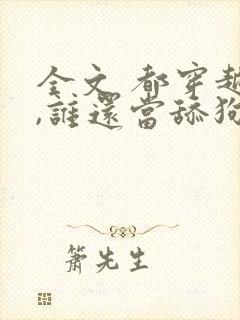 全文 都穿越
,誰還當舔狗
簫先生